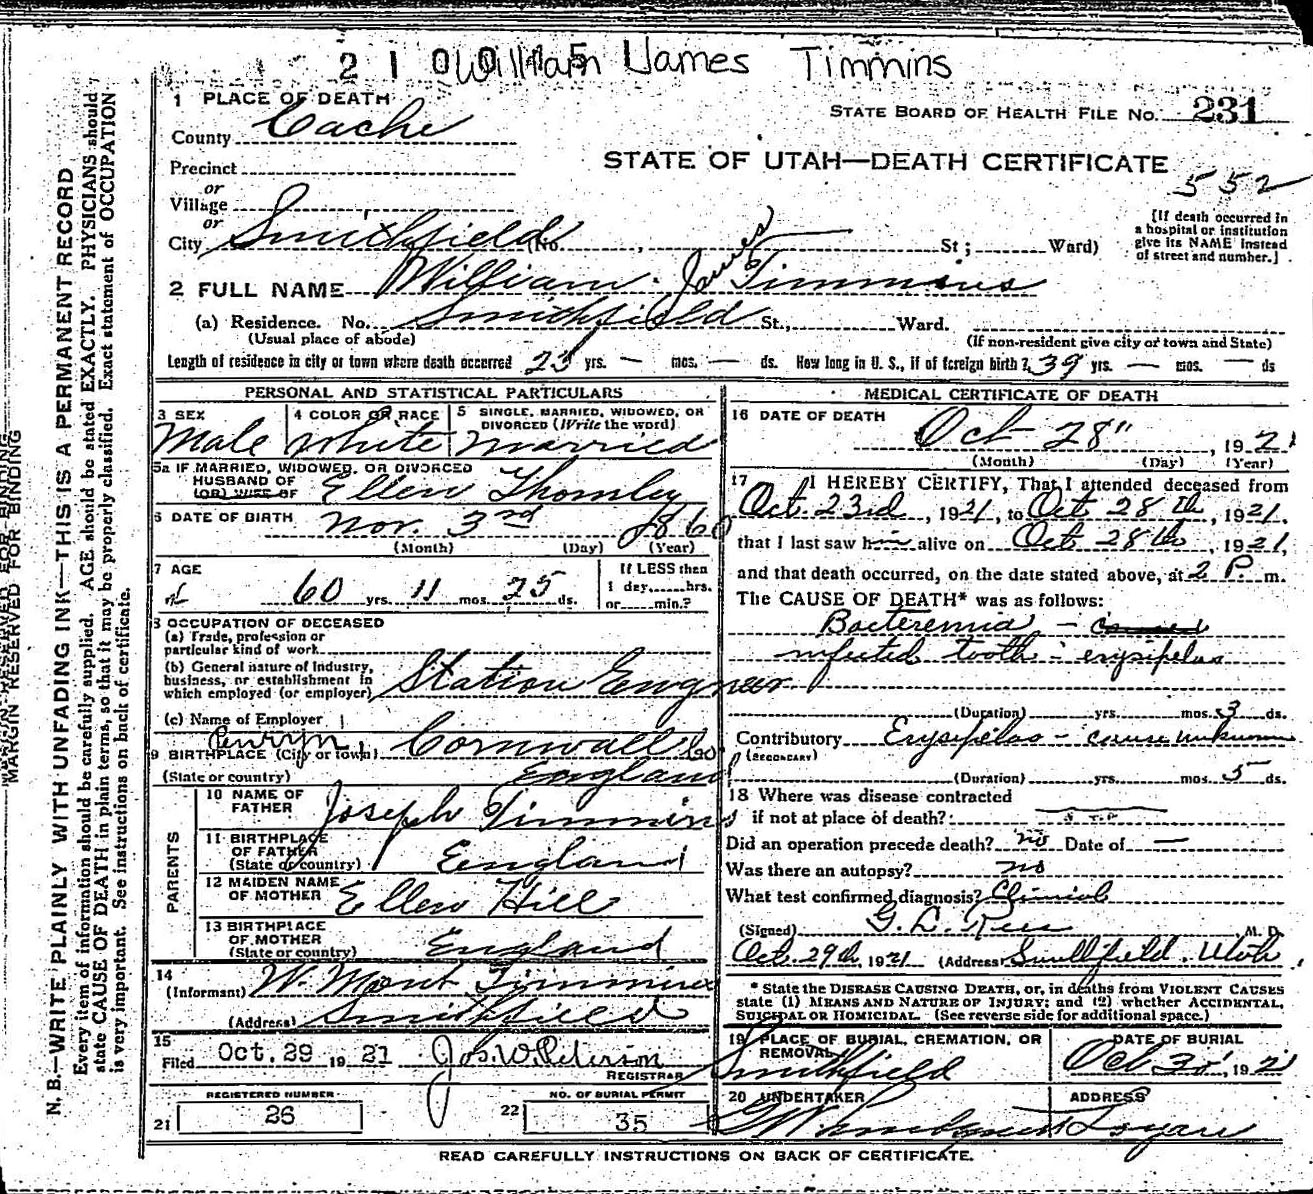 2 1 0 0 William James Timmins
1 PLACE OF DEATH
STATE BOARD OF HEALTH FILE No. 231
County Cache
STATE OF UTAH—DEATH CERTIFICATE
Precinct
552
or
Village
or
City Smithfield (No. , St; Ward)
[If death occurred in
a hospital or institution
give its NAME instead
of street and number.]
2 FULL NAME William James Timmins
(a) Residence. No. Smithfield St., Ward.
(Usual place of abode) (If non-resident give city or town and State)
Length of residence in city or town where death occurred 23 yrs. — mos. — ds. How long in U. S., if of foreign birth? 39 yrs. — mos. — ds
PERSONAL AND STATISTICAL PARTICULARS
3 SEX
Male
4 COLOR OR RACE
White
5 SINGLE, MARRIED, WIDOWED, OR
DIVORCED (Write the word)
married
5a IF MARRIED, WIDOWED, OR DIVORCED
HUSBAND OF
(OR) WIFE OF Ellen Thornley
6 DATE OF BIRTH Nov. 3rd 1860
(Month) (Day) (Year)
7 AGE
60 yrs. 11 mos. 25 ds.
If LESS then
1 day......hrs.
or......min.?
8 OCCUPATION OF DECEASED
(a) Trade, profession or
particular kind of work
(b) General nature of industry,
business, or establishment in
which employed (or employer) Station Engneer
(c) Name of Employer
Penryn,
9 BIRTHPLACE (City or town) Cornwall Co
(State or country) England
PARENTS
10 NAME OF
FATHER Joseph Timmins
11 BIRTHPLACE
OF FATHER
(State or country) England
12 MAIDEN NAME
OF MOTHER Ellen Hill
13 BIRTHPLACE
OF MOTHER
(State or country) England
14
(Informant) W. Mont Timmins
(Address) Smithfield
15
Filed Oct. 29 1921 Jos. W. Peterson
REGISTRAR
REGISTERED NUMBER
21 26
NO. OF BURIAL PERMIT
22 35
MEDICAL CERTIFICATE OF DEATH
16 DATE OF DEATH
Oct 28" , 1921
(Month) (Day) (Year)
17 I HEREBY CERTIFY, That I attended deceased from
Oct. 23rd, 1921, to Oct 28th, 1921.
that I last saw him alive on Oct 28th, 1921,
and that death occurred, on the date stated above, at 2 P. m.
The CAUSE OF DEATH* was as follows:
Bacteremia – caused
infected tooth - erysipelas
(Duration) yrs. mos. 3 ds.
Contributory Erysipelas - cause unknown
(SECONDARY)
(Duration) yrs. mos. 5 ds.
18 Where was disease contracted
if not at place of death?
Did an operation precede death? no Date of —
Was there an autopsy? no
What test confirmed diagnosis? Clinical
(Signed) G. L. Rees M. D.
Oct. 29th, 1921 (Address) Smithfield. Utah.
* State the DISEASE CAUSING DEATH, or, in deaths from VIOLENT CAUSES
state (1) MEANS AND NATURE OF INJURY; and (2) whether ACCIDENTAL,
SUICIDAL OR HOMICIDAL. (See reverse side for additional space.)
19 PLACE OF BURIAL, CREMATION, OR
REMOVAL
Smithfield
DATE OF BURIAL
Oct 30, 192
20 UNDERTAKER
ADDRESS
Logan
READ CAREFULLY INSTRUCTIONS ON BACK OF CERTIFICATE.
MARGIN RESERVED FOR BINDING
N. B.—WRITE PLAINLY WITH UNFADING INK—THIS IS A PERMANENT RECORD
Every item of information should be carefully supplied. AGE should be stated EXACTLY. PHYSICIANS should
state CAUSE OF DEATH in plain terms, so that it may be properly classified. Exact statement of OCCUPATION
is very important. See instructions on back of certificate.